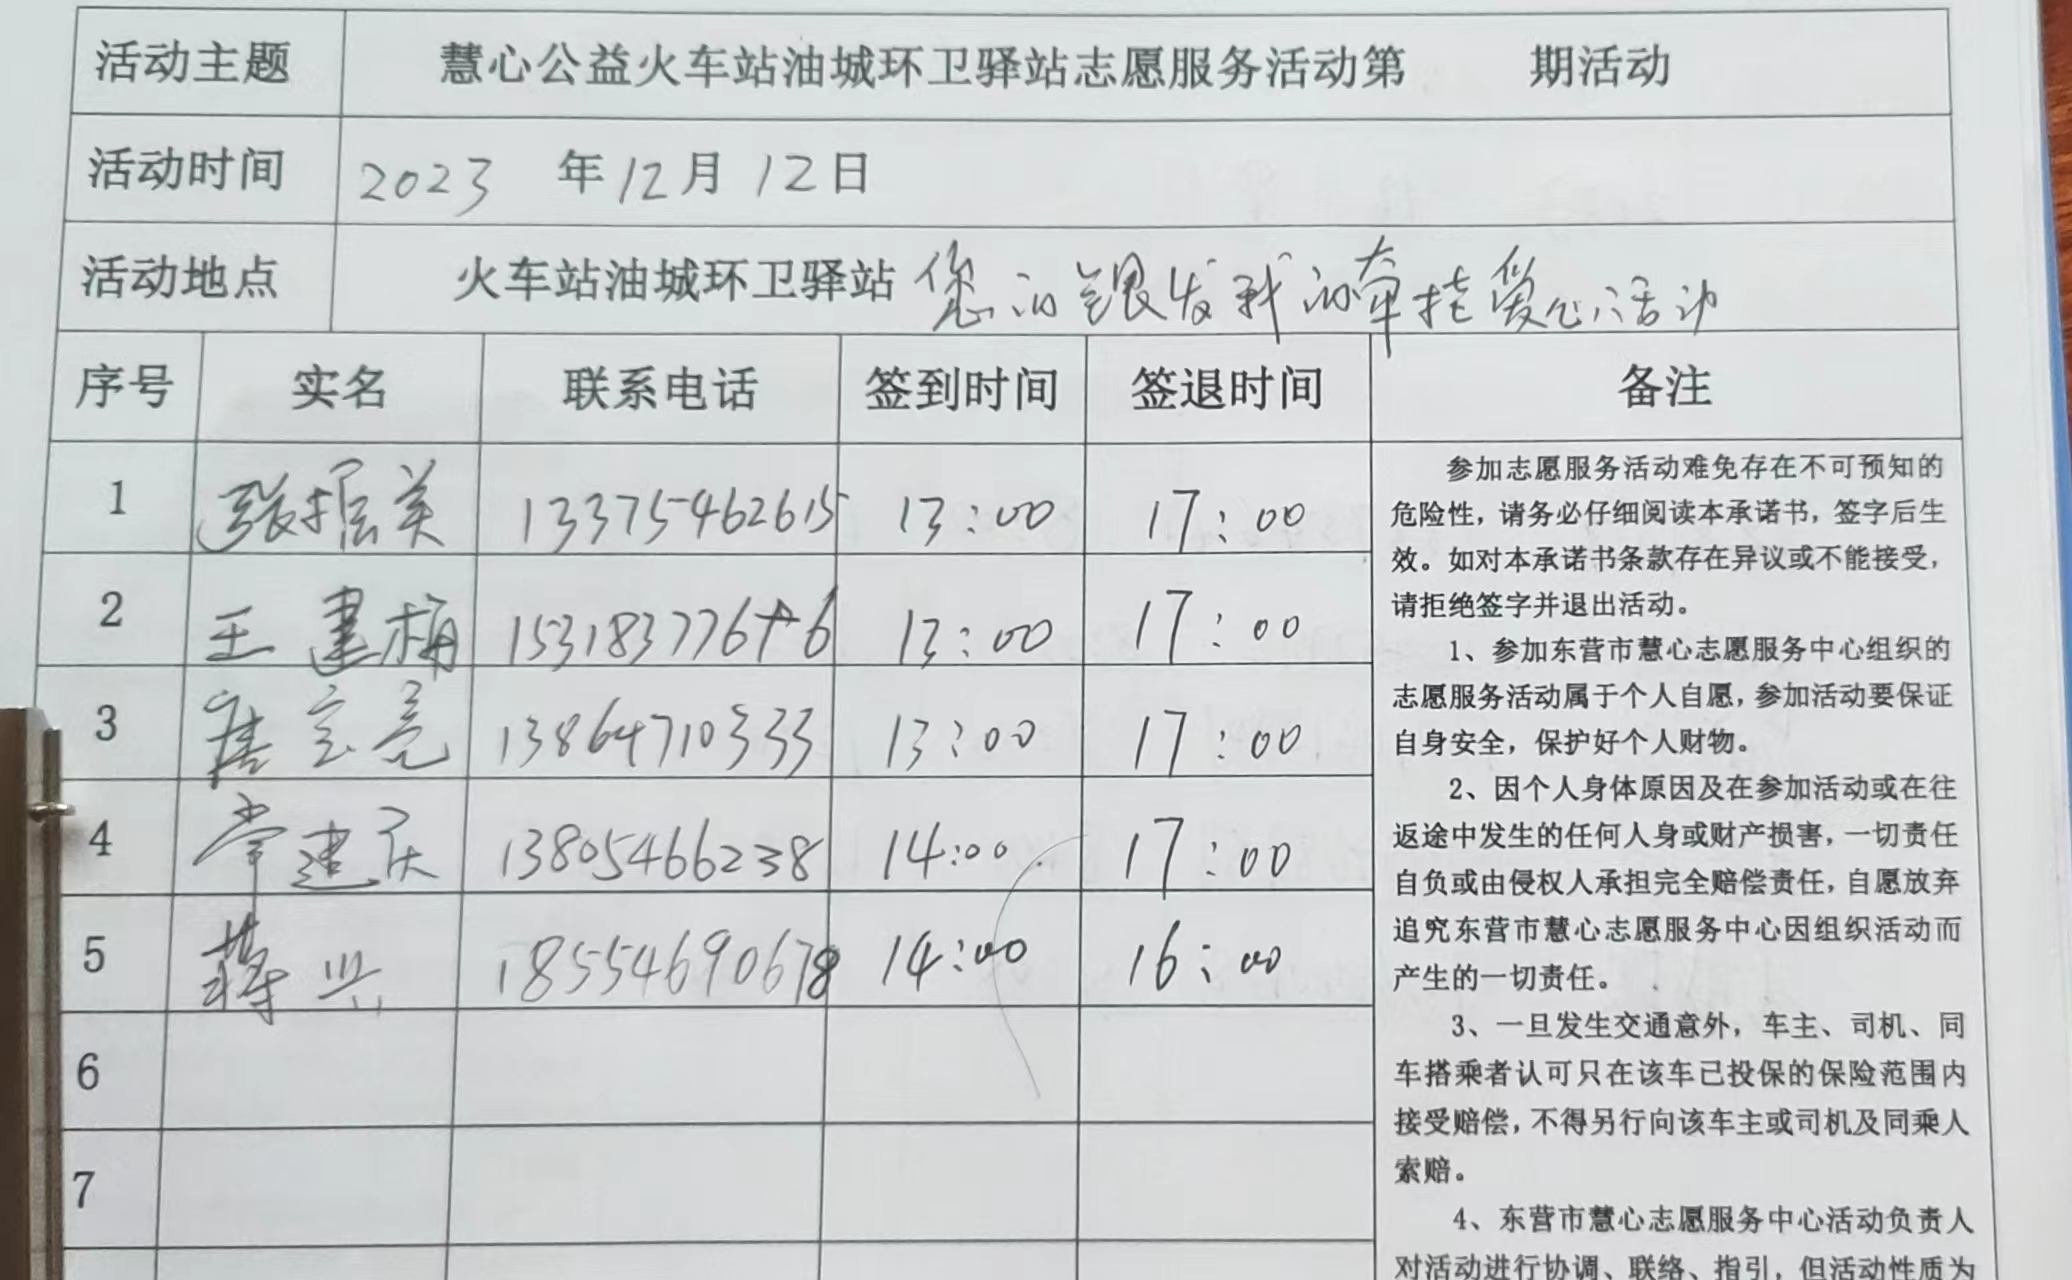 活动主题 慧心公益火车站油城环卫驿站志愿服务活动第 期活动
活动时间 2023 年 12 月 12 日
活动地点 火车站油城环卫驿站 您的银发我的牵挂爱心活动
序号 实名 联系电话 签到时间 签退时间 备注
1 张振美 13375462615 13:00 17:00
2 王建梅 13:00 17:00
3 13864710333 13:00 17:00
4 常建庆 13805466238 14:00 17:00
5 蒋兴 18554690678 14:00 16:00
6
7
参加志愿服务活动难免存在不可预知的
危险性，请务必仔细阅读本承诺书，签字后生
效。如对本承诺书条款存在异议或不能接受，
请拒绝签字并退出活动。
1、参加东营市慧心志愿服务中心组织的
志愿服务活动属于个人自愿，参加活动要保证
自身安全，保护好个人财物。
2、因个人身体原因及在参加活动或在往
返途中发生的任何人身或财产损害，一切责任
自负或由侵权人承担完全赔偿责任，自愿放弃
追究东营市慧心志愿服务中心因组织活动而
产生的一切责任。
3、一旦发生交通意外，车主、司机、同
车搭乘者认可只在该车已投保的保险范围内
接受赔偿，不得另行向该车主或司机及同乘人
索赔。
4、东营市慧心志愿服务中心活动负责人
对活动进行协调、联络、指引，但活动性质为